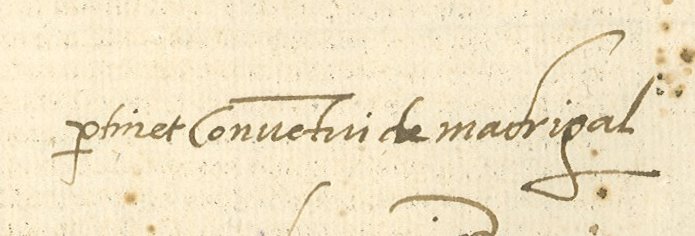 ꝑtinet Conuētui de madrigal